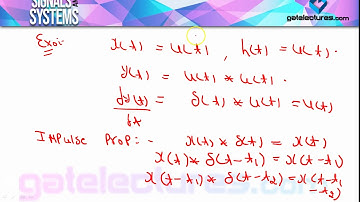 SIGNALS
SYSTEMS
gatelectures.com
Exo:- x(t) = u(t), h(t) = u(t).
y(t) = u(t) * u(t).
dy(t)/dt = δ(t) * u(t) = u(t)
IMPulse ProP:- x(t) * δ(t) = x(t)
x(t) * δ(t-t1) = x(t-t1)
x(t-t1) * δ(t-t2) = x(t-t1
-t2)
gatelectures.com